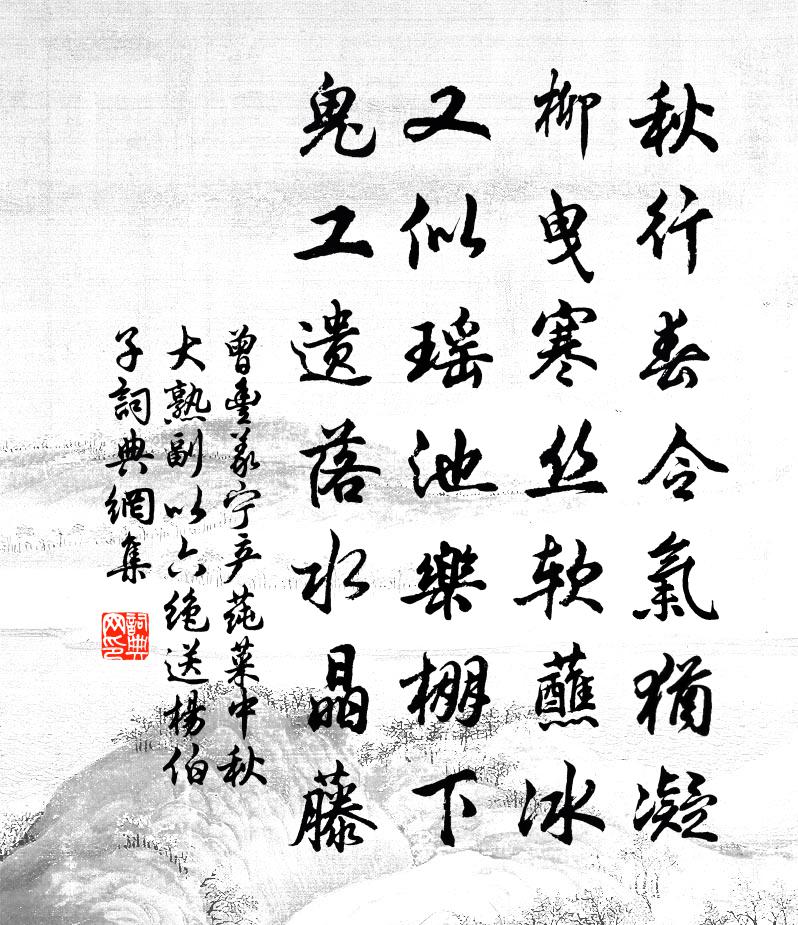 秋行春令氣猶凝
柳曳寒丝软蘸冰
又似瑶池樂棚下
鬼工遗落水晶藤
曾豐義宁产莼菜中秋
大熟副以六绝送楊伯
子詞典網集
詞典网印